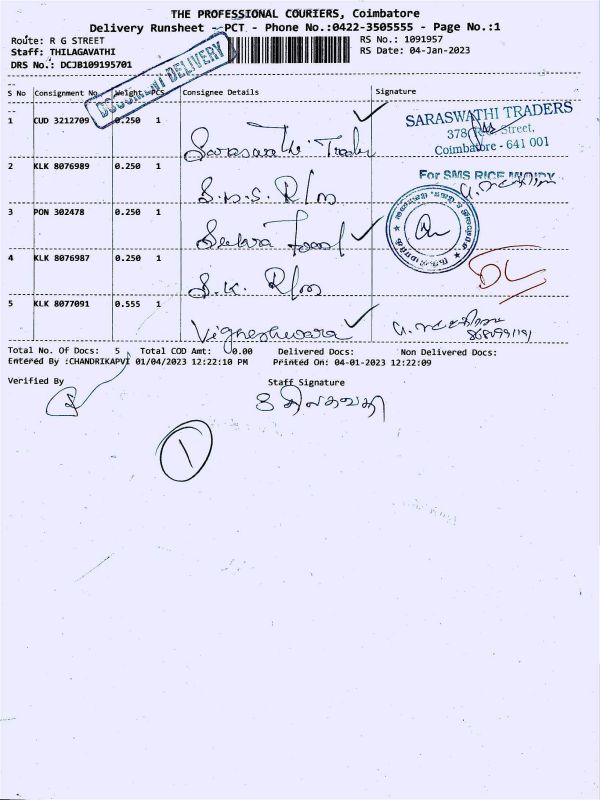 THE PROFESSIONAL COURIERS, Coimbatore
Delivery Runsheet - PCT - Phone No.:0422-3505555 - Page No.:1
Route: R G STREET
RS No.: 1091957
Staff: THILAGAVATHI
RS Date: 04-Jan-2023
DRS No.: DCJB109195701
DOCUMENT DELIVERY
S No Consignment No Weight PCS Consignee Details Signature
1 CUD 3212709 0.250 1 Saraswathi Trader
SARASWATHI TRADERS
378, Street,
Coimbatore - 641 001
2 KLK 8076989 0.250 1 S.M.S. R/m
For SMS RICE MUNDY
3 PON 302478 0.250 1 Food
4 KLK 8076987 0.250 1 S.K. R/m
DL
5 KLK 8077091 0.555 1 Vigneshwara
Total No. Of Docs: 5 Total COD Amt: 0.00 Delivered Docs: Non Delivered Docs:
Entered By :CHANDRIKAPVI 01/04/2023 12:22:10 PM Printed On: 04-01-2023 12:22:09
Verified By Staff Signature
1